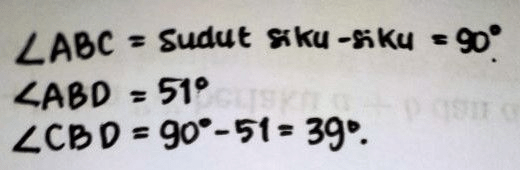 ∠ABC = Sudut siku-siku = 90°.
∠ABD = 51°
∠CBD = 90° - 51 = 39°.